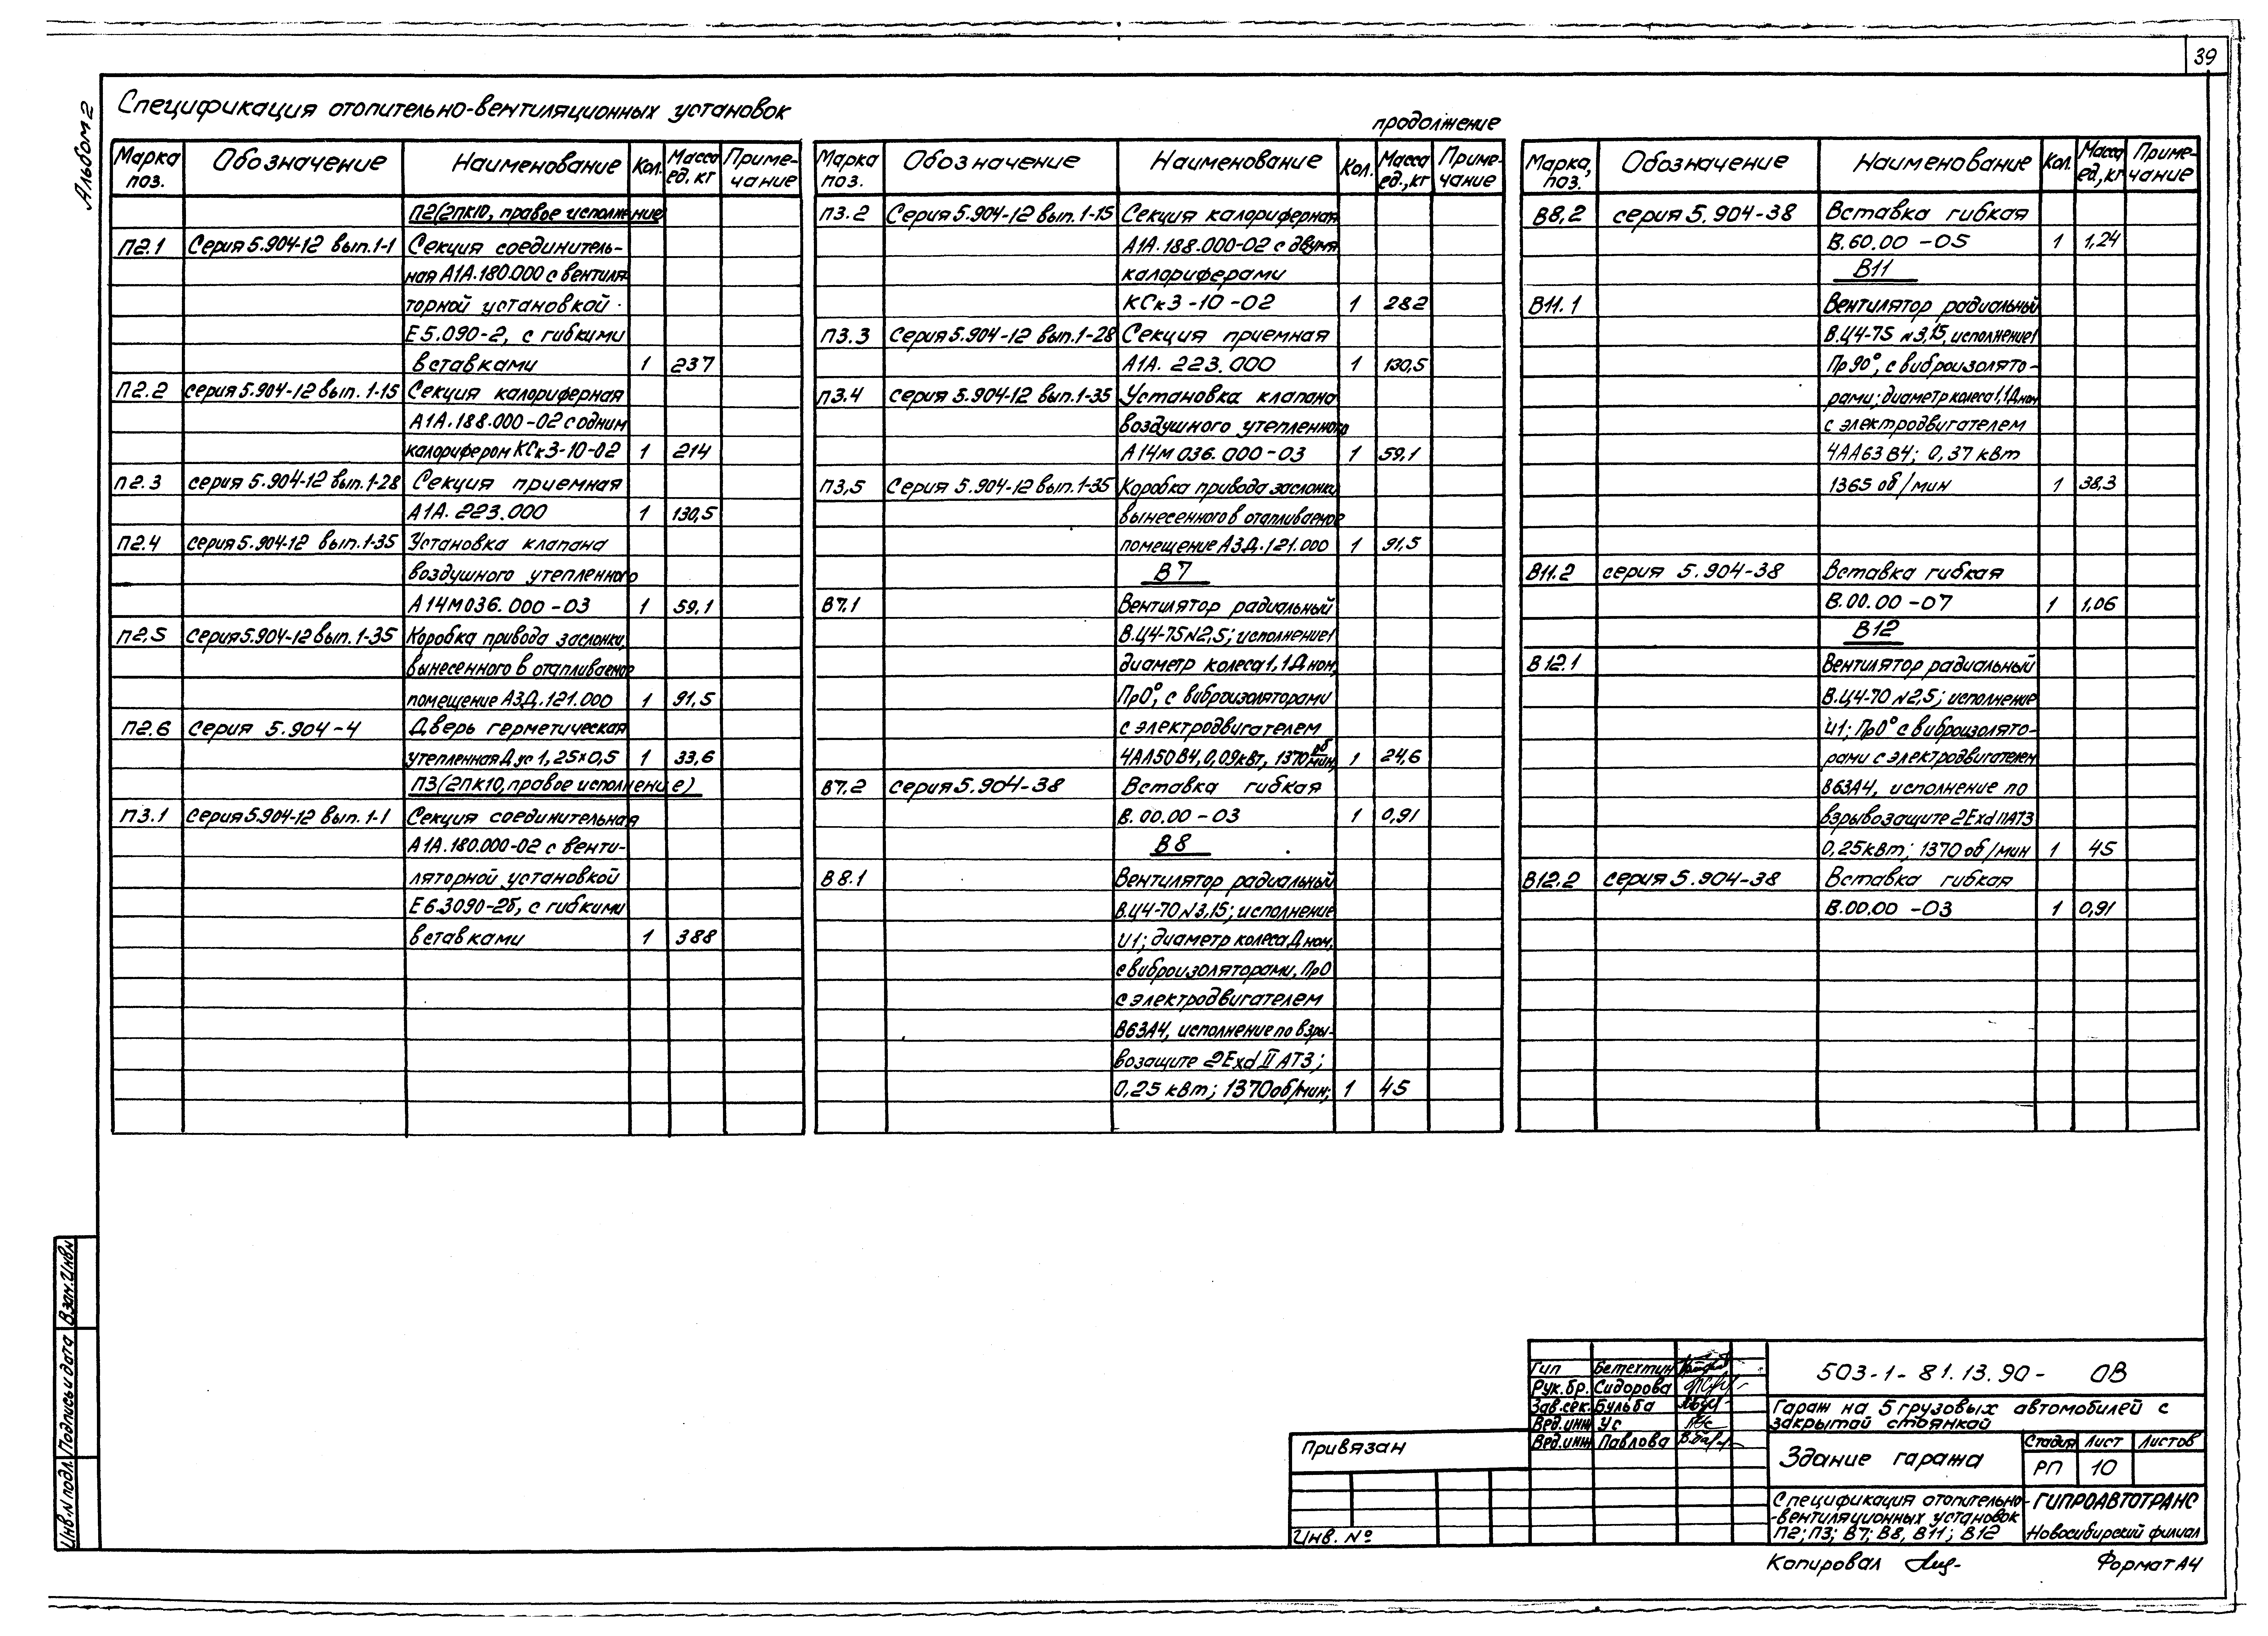 39
Альбом 2
Спецификация отопительно-вентиляционных установок
продолжение
Марка поз. Обозначение Наименование Кол. Масса ед, кг Приме-чание
П2(2ПК10, правое исполнение
П2.1 Серия 5.904-12 вып.1-1 Секция соединитель-
ная А1А.180.000 с вентиля
торной установкой
Е5.090-2, с гибкими
вставками 1 237
П2.2 серия 5.904-12 вып. 1-15 Секция калориферная
А1А.188.000-02 с одним
калорифером КСк3-10-02 1 214
П2.3 серия 5.904-12 вып.1-28 Секция приемная
А1А. 223.000 1 130,5
П2.4 серия 5.904-12 вып.1-35 Установка клапана
воздушного утепленного
А14М036.000-03 1 59,1
П2,5 Серия 5.904-12 вып. 1-35 Коробка привода заслонки,
вынесенного в отапливаемое
помещение АЗД.121.000 1 91,5
П2.6 Серия 5.904-4 Дверь герметическая
утепленная Д ус 1,25×0,5 1 33,6
П3(2ПК10, правое исполнение)
П3.1 Серия 5.904-12 вып. 1-1 Секция соединительная
А1А.180.000-02 с венти-
ляторной установкой
Е6.3090-2б, с гибкими
вставками 1 388
Марка поз. Обозначение Наименование Кол. Масса ед., кг Приме-чание
П3.2 Серия 5.904-12 вып.1-15 Секция калориферная
А1А.188.000-02 с двумя
калориферами
КСк3-10-02 1 282
П3.3 Серия 5.904-12 вып.1-28 Секция приемная
А1А. 223.000 1 130,5
П3.4 Серия 5.904-12 вып.1-35 Установка клапана
воздушного утепленного
А14М036.000-03 1 59,1
П3,5 Серия 5.904-12 вып.1-35 Коробка привода заслонки
вынесенного в отапливаемое
помещение АЗД.121.000 1 91,5
В7
В7.1 Вентилятор радиальный
В.Ц4-75 N2,5; исполнение1
диаметр колеса 1,1 Дном,
Пр0°, с виброизоляторами
с электродвигателем
4АА50В4, 0,09кВт, 1370 об/мин, 1 24,6
В7.2 серия 5.904-38 Вставка гибкая
В.00.00-03 1 0,91
В8
В8.1 Вентилятор радиальный
В.Ц4-70 N3,15; исполнение
И1; диаметр колеса Дном,
с виброизоляторами, Пр0
с электродвигателем
В63А4, исполнение по взры-
возащите 2ЕхdIIАТ3;
0,25 кВт; 1370 об/мин; 1 45
Марка, поз. Обозначение Наименование Кол. Масса ед, кг Приме-чание
В8,2 серия 5.904-38 Вставка гибкая
В.60.00-05 1 1,24
В11
В11.1 Вентилятор радиальный
В.Ц4-75 N3,15, исполнение1
Пр90°, с виброизолято-
рами; диаметр колеса 1,1 Дном
с электродвигателем
4АА63В4; 0,37 кВт
1365 об/мин 1 38,3
В11.2 серия 5.904-38 Вставка гибкая
В.00.00-07 1 1,06
В12
В12.1 Вентилятор радиальный
В.Ц4-70 N2,5; исполнение
И1; Пр0° с виброизолято-
рами с электродвигателем
В63А4, исполнение по
взрывозащите 2ЕхdIIАТ3
0,25кВт; 1370 об/мин 1 45
В12.2 серия 5.904-38 Вставка гибкая
В.00.00-03 1 0,91
Взам.инв.N
Подпись и дата
Инв.N подл.
Гип Бетехтин
Рук.бр. Сидорова
Зав.сек. Бульба
Вед.инж Ус
Вед.инж Павлова
503-1-81.13.90- ОВ
Гараж на 5 грузовых автомобилей с
закрытой стоянкой
Здание гаража
Стадия Лист Листов
РП 10
Спецификация отопительно-
-вентиляционных установок
П2; П3; В7; В8, В11; В12
ГИПРОАВТОТРАНС
Новосибирский филиал
Привязан
Инв. №
Копировал
Формат А4